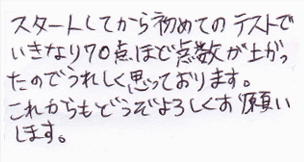 スタートしてから初めてのテストで
いきなり70点ほど点数が上がっ
たのでうれしく思っております。
これからもどうぞよろしくお願い
します。